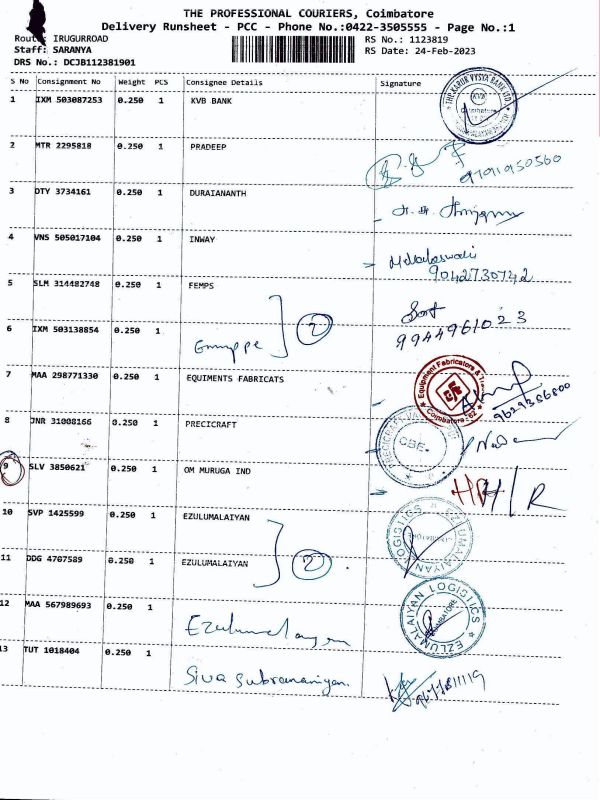 THE PROFESSIONAL COURIERS, Coimbatore
Delivery Runsheet - PCC - Phone No.:0422-3505555 - Page No.:1
Route: IRUGURROAD RS No.: 1123819
Staff: SARANYA RS Date: 24-Feb-2023
DRS No.: DCJB112381901
S No Consignment No Weight PCS Consignee Details Signature
1 IXM 503087253 0.250 1 KVB BANK
THE KARUR VYSYA BANK LTD
KVB
2 MTR 2295818 0.250 1 PRADEEP
3 DTY 3734161 0.250 1 DURAIANANTH
4 VNS 505017104 0.250 1 INWAY
9042730742
5 SLM 314482748 0.250 1 FEMPS
2
6 IXM 503138854 0.250 1
9944961023
7 MAA 298771330 0.250 1 EQUIMENTS FABRICATS
Equipment Fabricators &
Coimbatore
9629386800
8 JNR 31008166 0.250 1 PRECICRAFT
CBE
9 SLV 3850621 0.250 1 OM MURUGA IND
10 SVP 1425599 0.250 1 EZULUMALAIYAN
EZULUMALAIYAN LOGISTICS
11 DDG 4707589 0.250 1 EZULUMALAIYAN
2
12 MAA 567989693 0.250 1
EZLUMALAIYAN LOGISTICS
13 TUT 1018404 0.250 1 Siva Subramaniyan